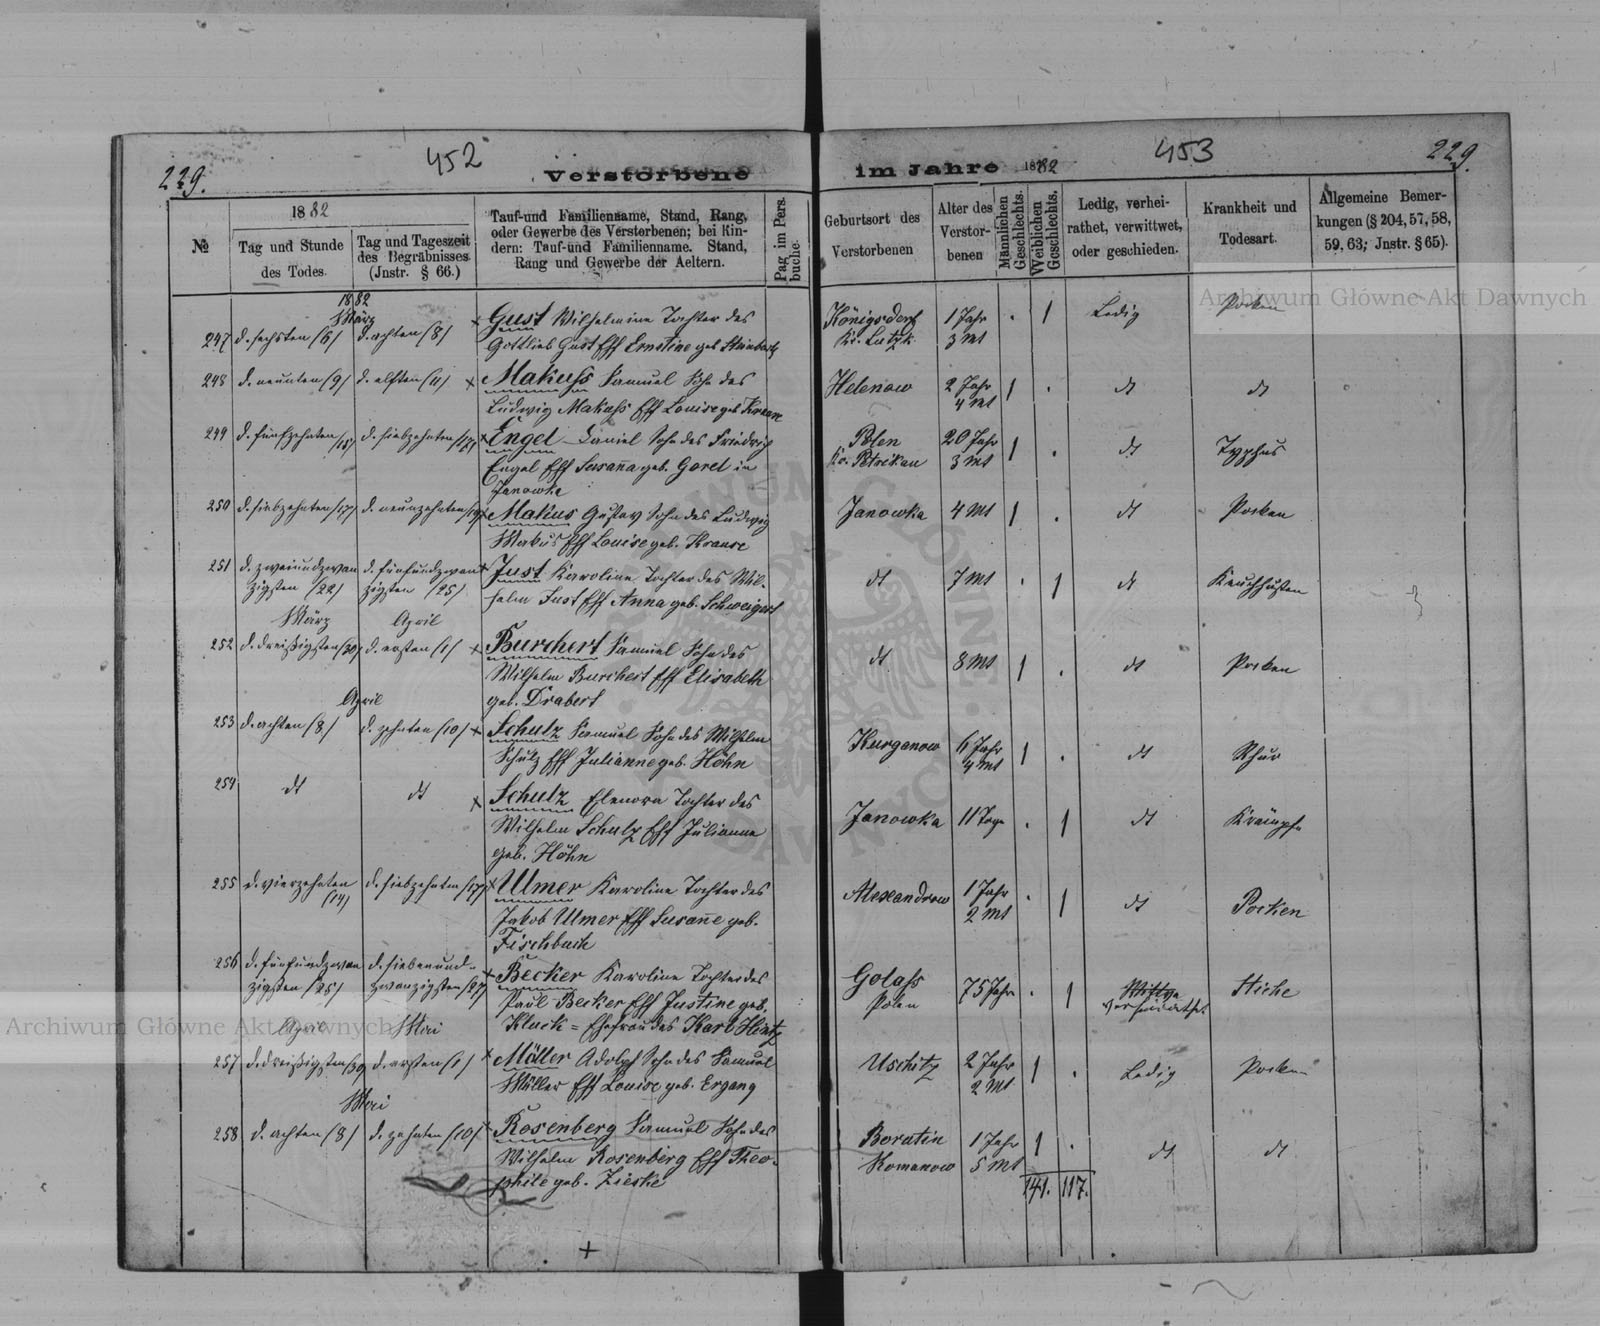 452
229.
Verstorbene
1882
№
Tag und Stunde
des Todes.
Tag und Tageszeit
des Begräbnisses.
(Instr. § 66.)
Tauf-und Familienname, Stand, Rang,
oder Gewerbe des Verstorbenen; bei Kin-
dern: Tauf-und Familienname. Stand,
Rang und Gewerbe der Aeltern.
Pag. im Pers.
buche.
1882
März
247 d. sechsten /6/ d. achten /8/ Gust Wilhelmine Tochter des
Gottlieb Gust Eff Ernstine geb
248 d. neunten /9/ d. elften /11/ Makuss Samuel Sohn des
Ludwig Makuss Eff Louise geb Krause
249 d. fünfzehnten d. siebzehnten /17/ Engel Daniel Sohn des Friedrich
Engel Eff Susana geb. Goret in
Janowka
250 d. siebzehnten /17/ d. neunzehnten /19/ Makus Gustav Sohn des Ludwig
Makus Eff Louise geb. Krause
251 d. zweiundzwan d. fünfundzwan Just Karoline Tochter des Wil-
zigsten /22/ zigsten /25/ helm Just Eff Anna geb. Schweigert
März April
252 d. dreißigsten /30/ d. ersten /1/ Burchert Samuel Sohn des
Wilhelm Burchert Eff Elisabeth
geb. Drabert
April
253 d. achten /8/ d. zehnten /10/ Schulz Samuel Sohn des Wilhelm
Schulz Eff Julianne geb. Höhn
254 dt dt Schulz Elenora Tochter des
Wilhelm Schulz Eff Julianna
geb. Höhn
255 d. vierzehnten d. siebzehnten /17/ Ulmer Karoline Tochter des
/14/
Jakob Ulmer Eff Susane geb.
Fischbuch
256 d. fünfundzwan d. siebenund- Becker Karoline Tochter des
zigsten /25/ zwanzigsten /27/ Paul Becker Eff Justine geb.
April Mai Kluck = Ehefrau des Karl Hintz
257 d. dreißigsten /30/ d. ersten /1/ Möller Adolph Sohn des Samuel
Müller Eff Louise geb. Ergang
Mai
258 d. achten /8/ d. zehnten /10/ Rosenberg Samuel Sohn des
Wilhelm Rosenberg Eff Theo-
phile geb. Zieske
453
229.
im Jahre 1882
Geburtsort des
Verstorbenen
Alter des
Verstor-
benen
Männlichen
Geschlechts.
Weiblichen
Geschlechts.
Ledig, verhei-
rathet, verwittwet,
oder geschieden.
Krankheit und
Todesart.
Allgemeine Bemer-
kungen (§ 204, 57, 58,
59, 63; Jnstr. § 65).
Königsdorf 1 Jahr . 1 Ledig Pocken
Kr. Lutzk 3 Mt
Helenow 2 Jahr 1 . dt dt
4 Mt
Polen 20 Jahr 1 . dt Typhus
Kr. Petrikau 3 Mt
Janowka 4 Mt 1 . dt Pocken
dt 7 Mt . 1 dt Keuchhusten
dt 8 Mt 1 . dt Pocken
Kurganow 6 Jahr 1 . dt
4 Mt
Janowka 11 Tage . 1 dt Krämpfe
Alexandrow 1 Jahr . 1 dt Pocken
2 Mt
Golass 75 Jahr . 1 Stiche
Polen
Uschitz 2 Jahr 1 . Ledig Pocken
2 Mt
Boratin 1 Jahr 1 . dt dt
Komanow 5 Mt
141. 117.
Archiwum Główne Akt Dawnych
Archiwum Główne Akt Dawnych